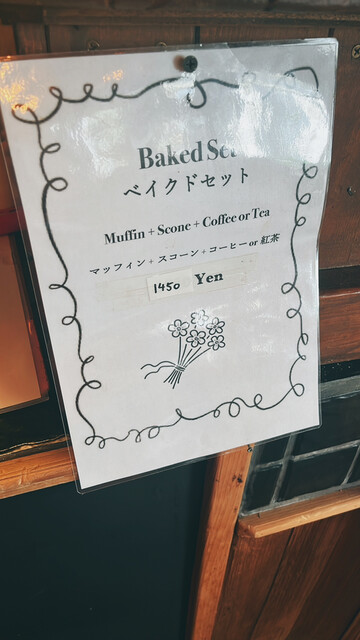 Baked Set
ベイクドセット
Muffin + Scone + Coffee or Tea
マッフィン + スコーン + コーヒー or 紅茶
1450 Yen